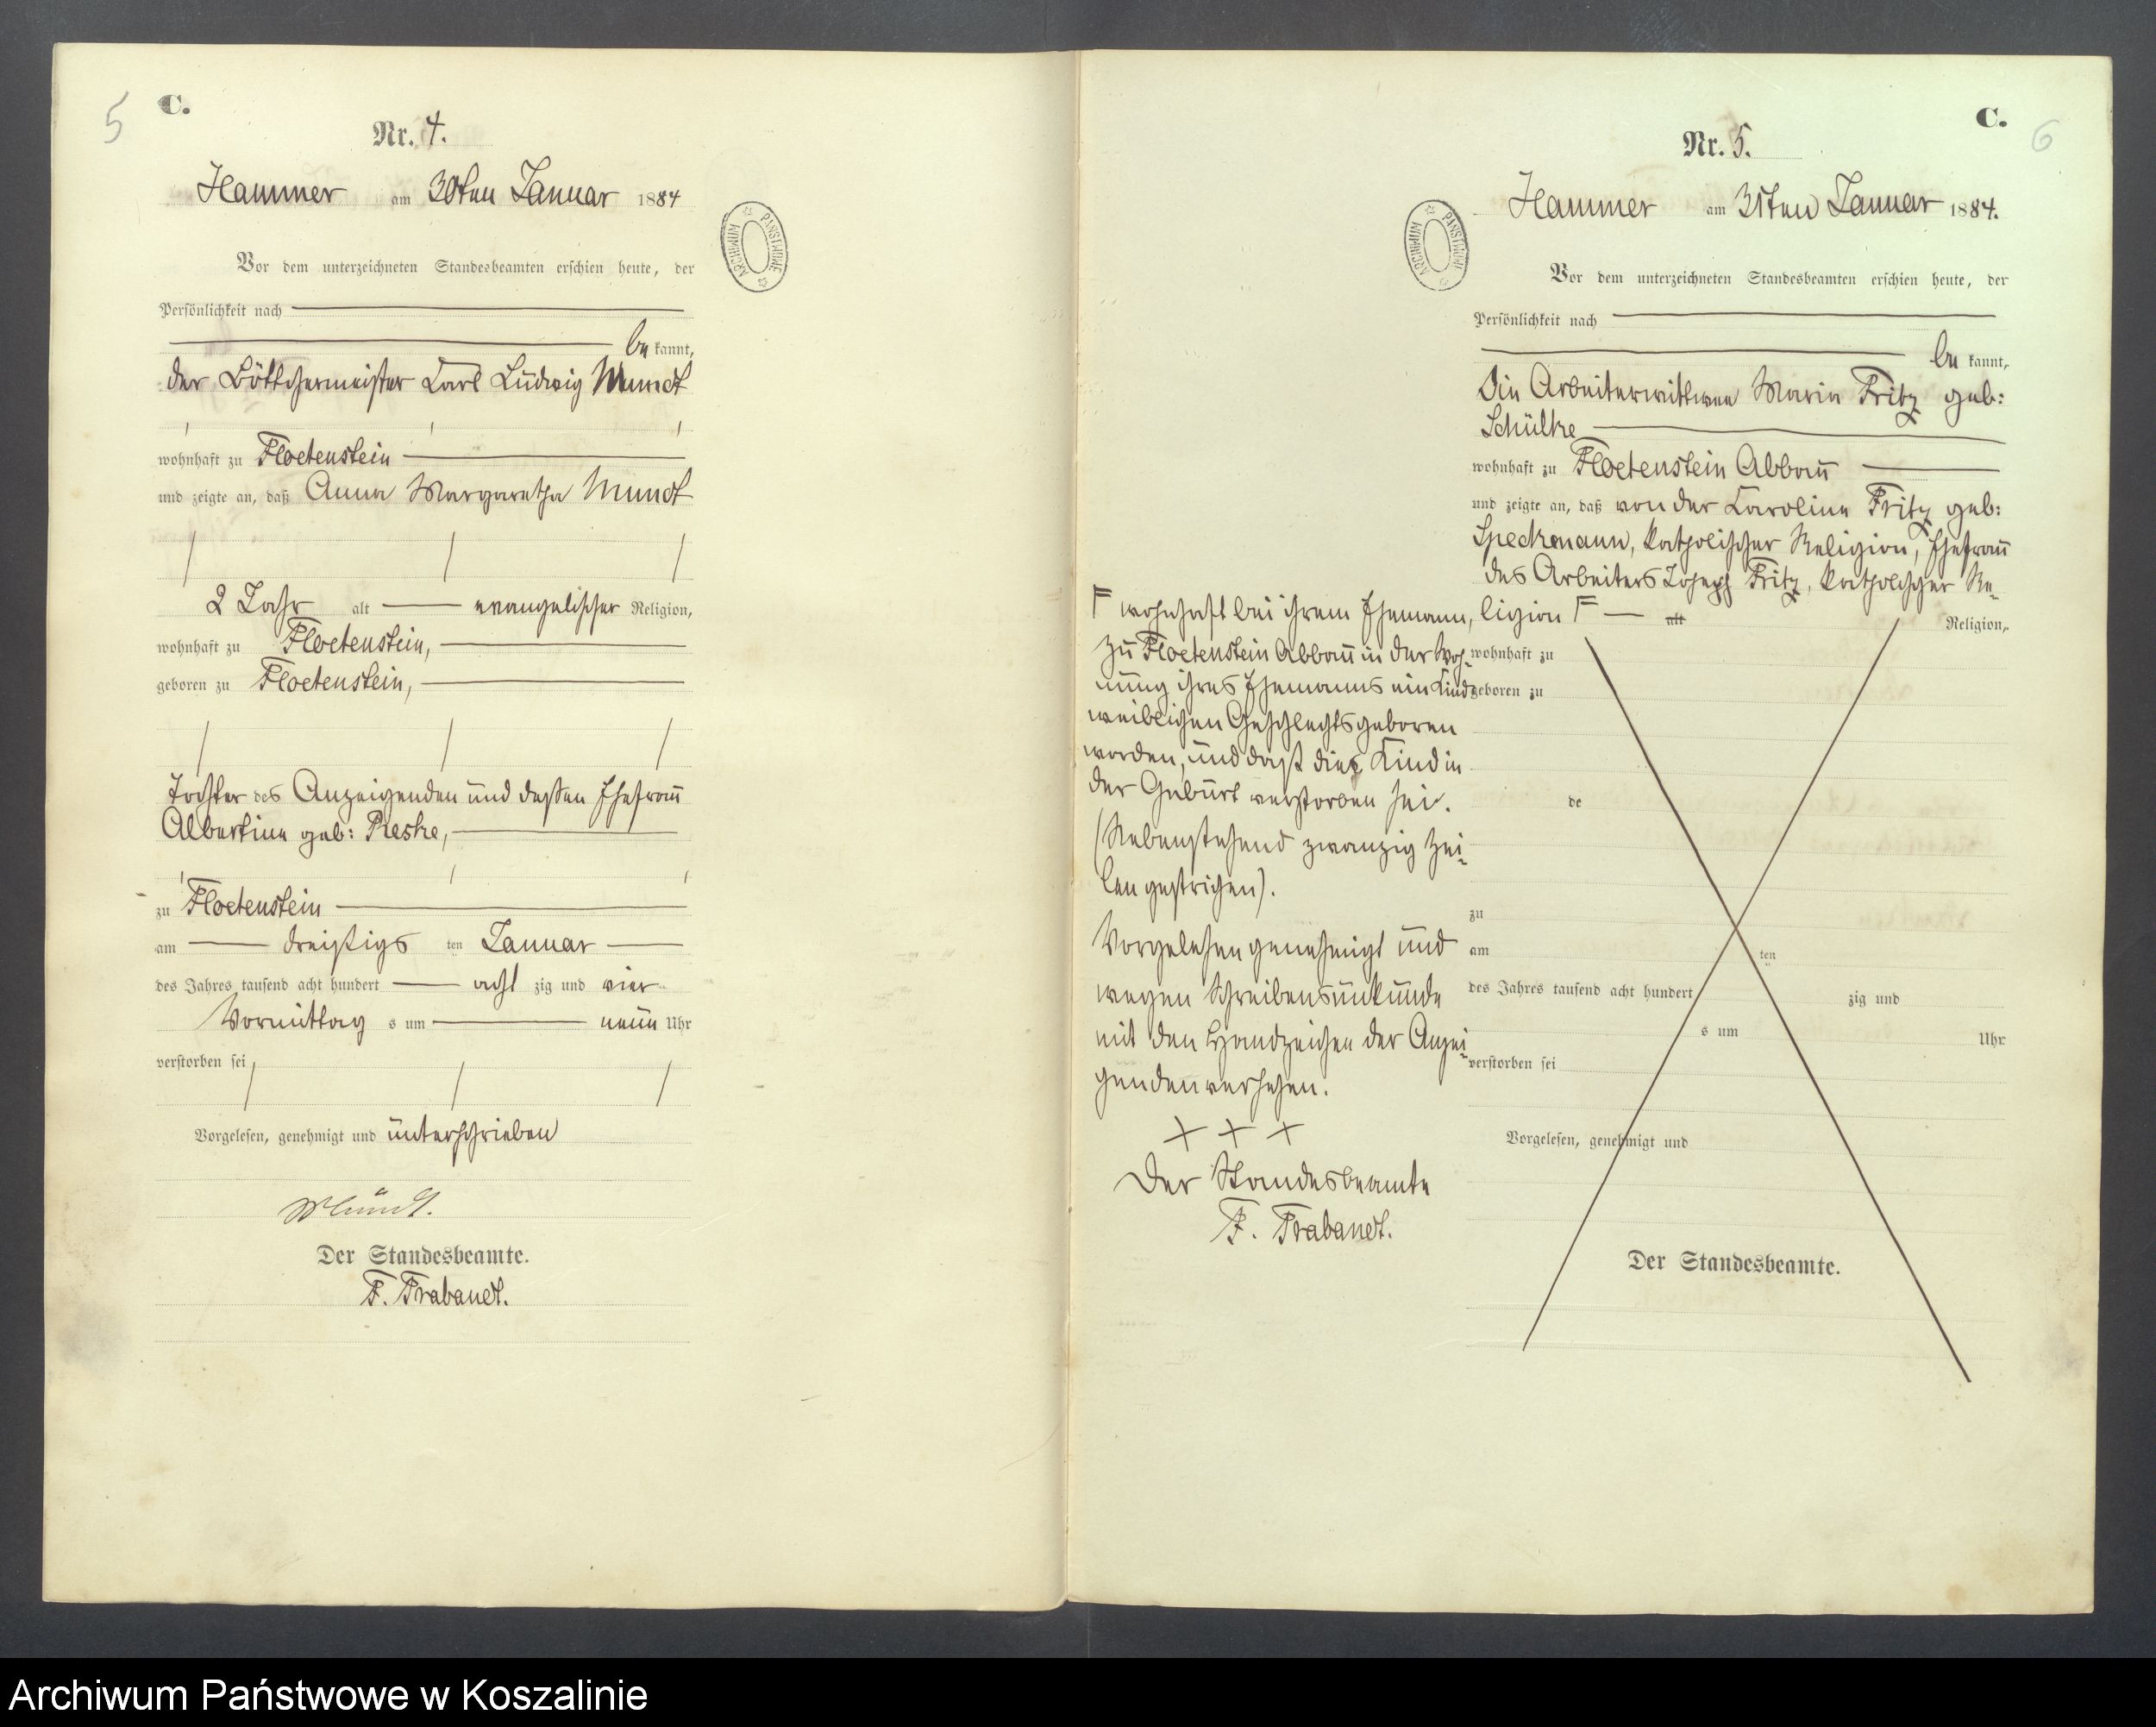 5
C.
Nr. 4.
Hammer am 30ten Januar 1884
ARCHIWUM PAŃSTWOWE
Vor dem unterzeichneten Standesbeamten erschien heute, der
Persönlichkeit nach
bekannt,
der Böttchermeister Carl Ludwig Mundt
wohnhaft zu Floetenstein
und zeigte an, daß Anna Margaretha Mundt
2 Jahr alt evangelischer Religion,
wohnhaft zu Floetenstein,
geboren zu Floetenstein,
Tochter des Anzeigenden und dessen Ehefrau
Albertine geb: Pieske,
zu Floetenstein
am dreißigs ten Januar
des Jahres tausend acht hundert acht zig und vier
Vormittag s um neun Uhr
verstorben sei
Vorgelesen, genehmigt und unterschrieben
Mundt.
Der Standesbeamte.
F. Trabandt.
C.
6
Nr. 5.
Hammer am 31ten Januar 1884.
ARCHIWUM PAŃSTWOWE
Vor dem unterzeichneten Standesbeamten erschien heute, der
Persönlichkeit nach
bekannt,
Die Arbeiterwittwe Maria Fritz geb:
Schülke
wohnhaft zu Floetenstein Abbau
und zeigte an, daß von der Caroline Fritz geb:
Speckmann, katholischer Religion, Ehefrau
des Arbeiters Joseph Fritz, katholischer Re-
ligion F alt Religion,
wohnhaft zu
geboren zu
de
zu
am ten
des Jahres tausend acht hundert zig und
s um Uhr
verstorben sei
Vorgelesen, genehmigt und
Der Standesbeamte.
F wohnhaft bei ihrem Ehemann,
zu Floetenstein Abbau in der Woh-
nung ihres Ehemanns ein Kind
weiblichen Geschlechts geboren
worden, und daß dies Kind in
der Geburt verstorben sei.
(Nebenstehend zwanzig Zei-
len gestrichen).
Vorgelesen genehmigt und
wegen Schreibensunkunde
mit den Handzeichen der Anzei-
genden versehen.
+ + +
Der Standesbeamte
F. Trabandt.
Archiwum Państwowe w Koszalinie